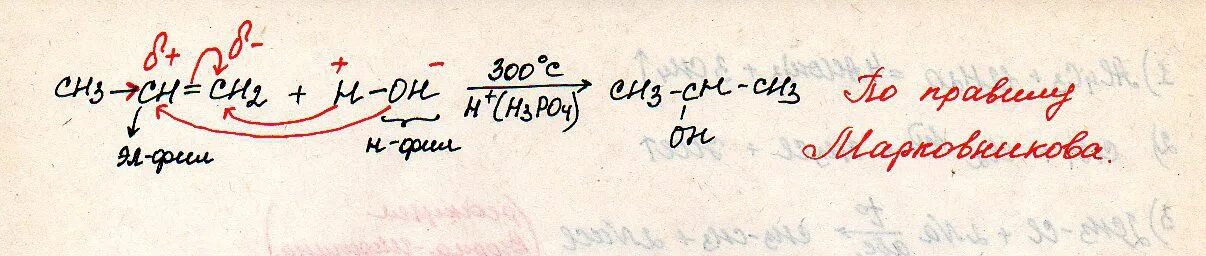 δ+ δ-
CH3→CH=CH2 + H-OH 300°C H+(H3PO4) → CH3-CH-CH3
+ -
OH
эл-фил н-фил
По правилу
Марковникова.